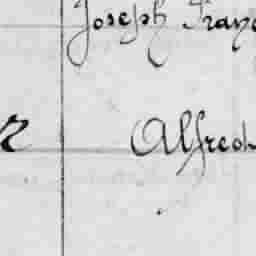 Joseph Franç
Alfred